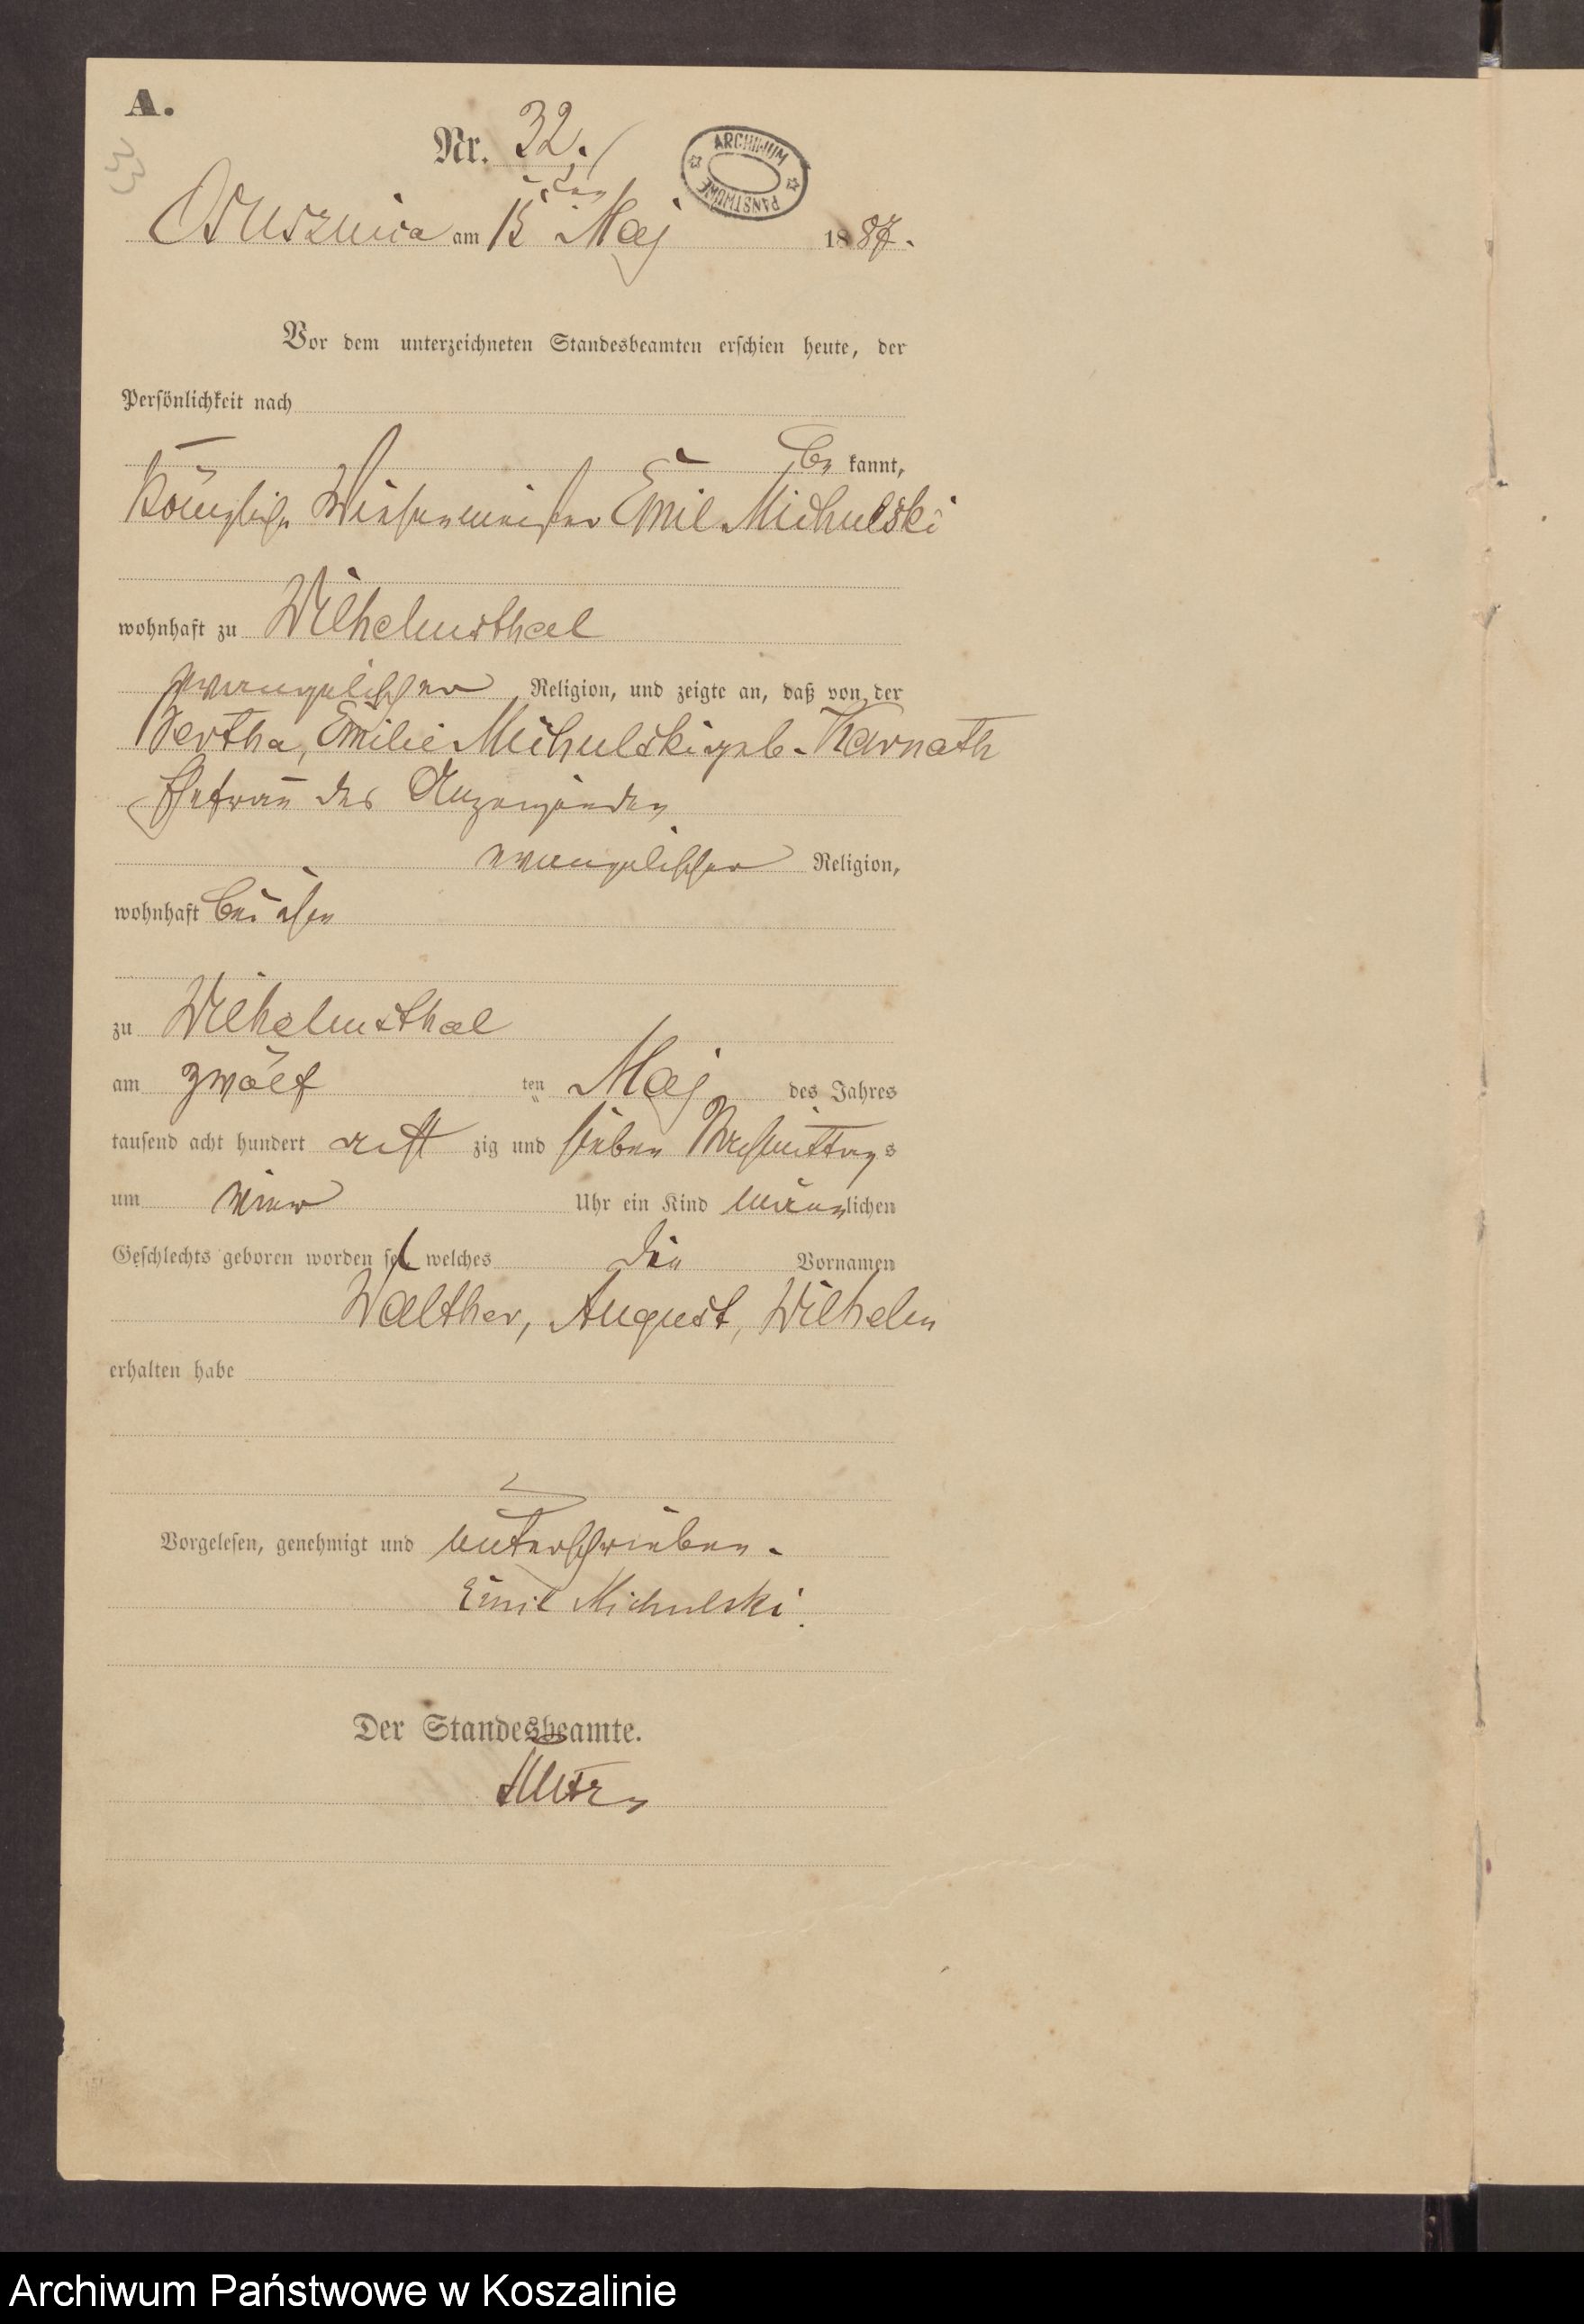 A.
33
Nr. 32.
ARCHIWUM PAŃSTWOWE
Ossusznica am 15ten Maj 1887.
Vor dem unterzeichneten Standesbeamten erschien heute, der
Persönlichkeit nach
be kannt,
Königliche Wiesenmeister Emil Michulski
wohnhaft zu Wilhelmsthal
evangelischer Religion, und zeigte an, daß von der
Bertha, Emilie Michulski geb. Karnath
Ehefrau des Anzeigenden
evangelischer Religion,
wohnhaft bei ihm
zu Wilhelmsthal
am zwölf ten Maj des Jahres
tausend acht hundert acht zig und sieben Nachmittags
um vier Uhr ein Kind männlichen
Geschlechts geboren worden sei welches die Vornamen
Walther, August, Wilhelm
erhalten habe
Vorgelesen, genehmigt und unterschrieben.
Emil Michulski.
Der Standesbeamte.
Archiwum Państwowe w Koszalinie